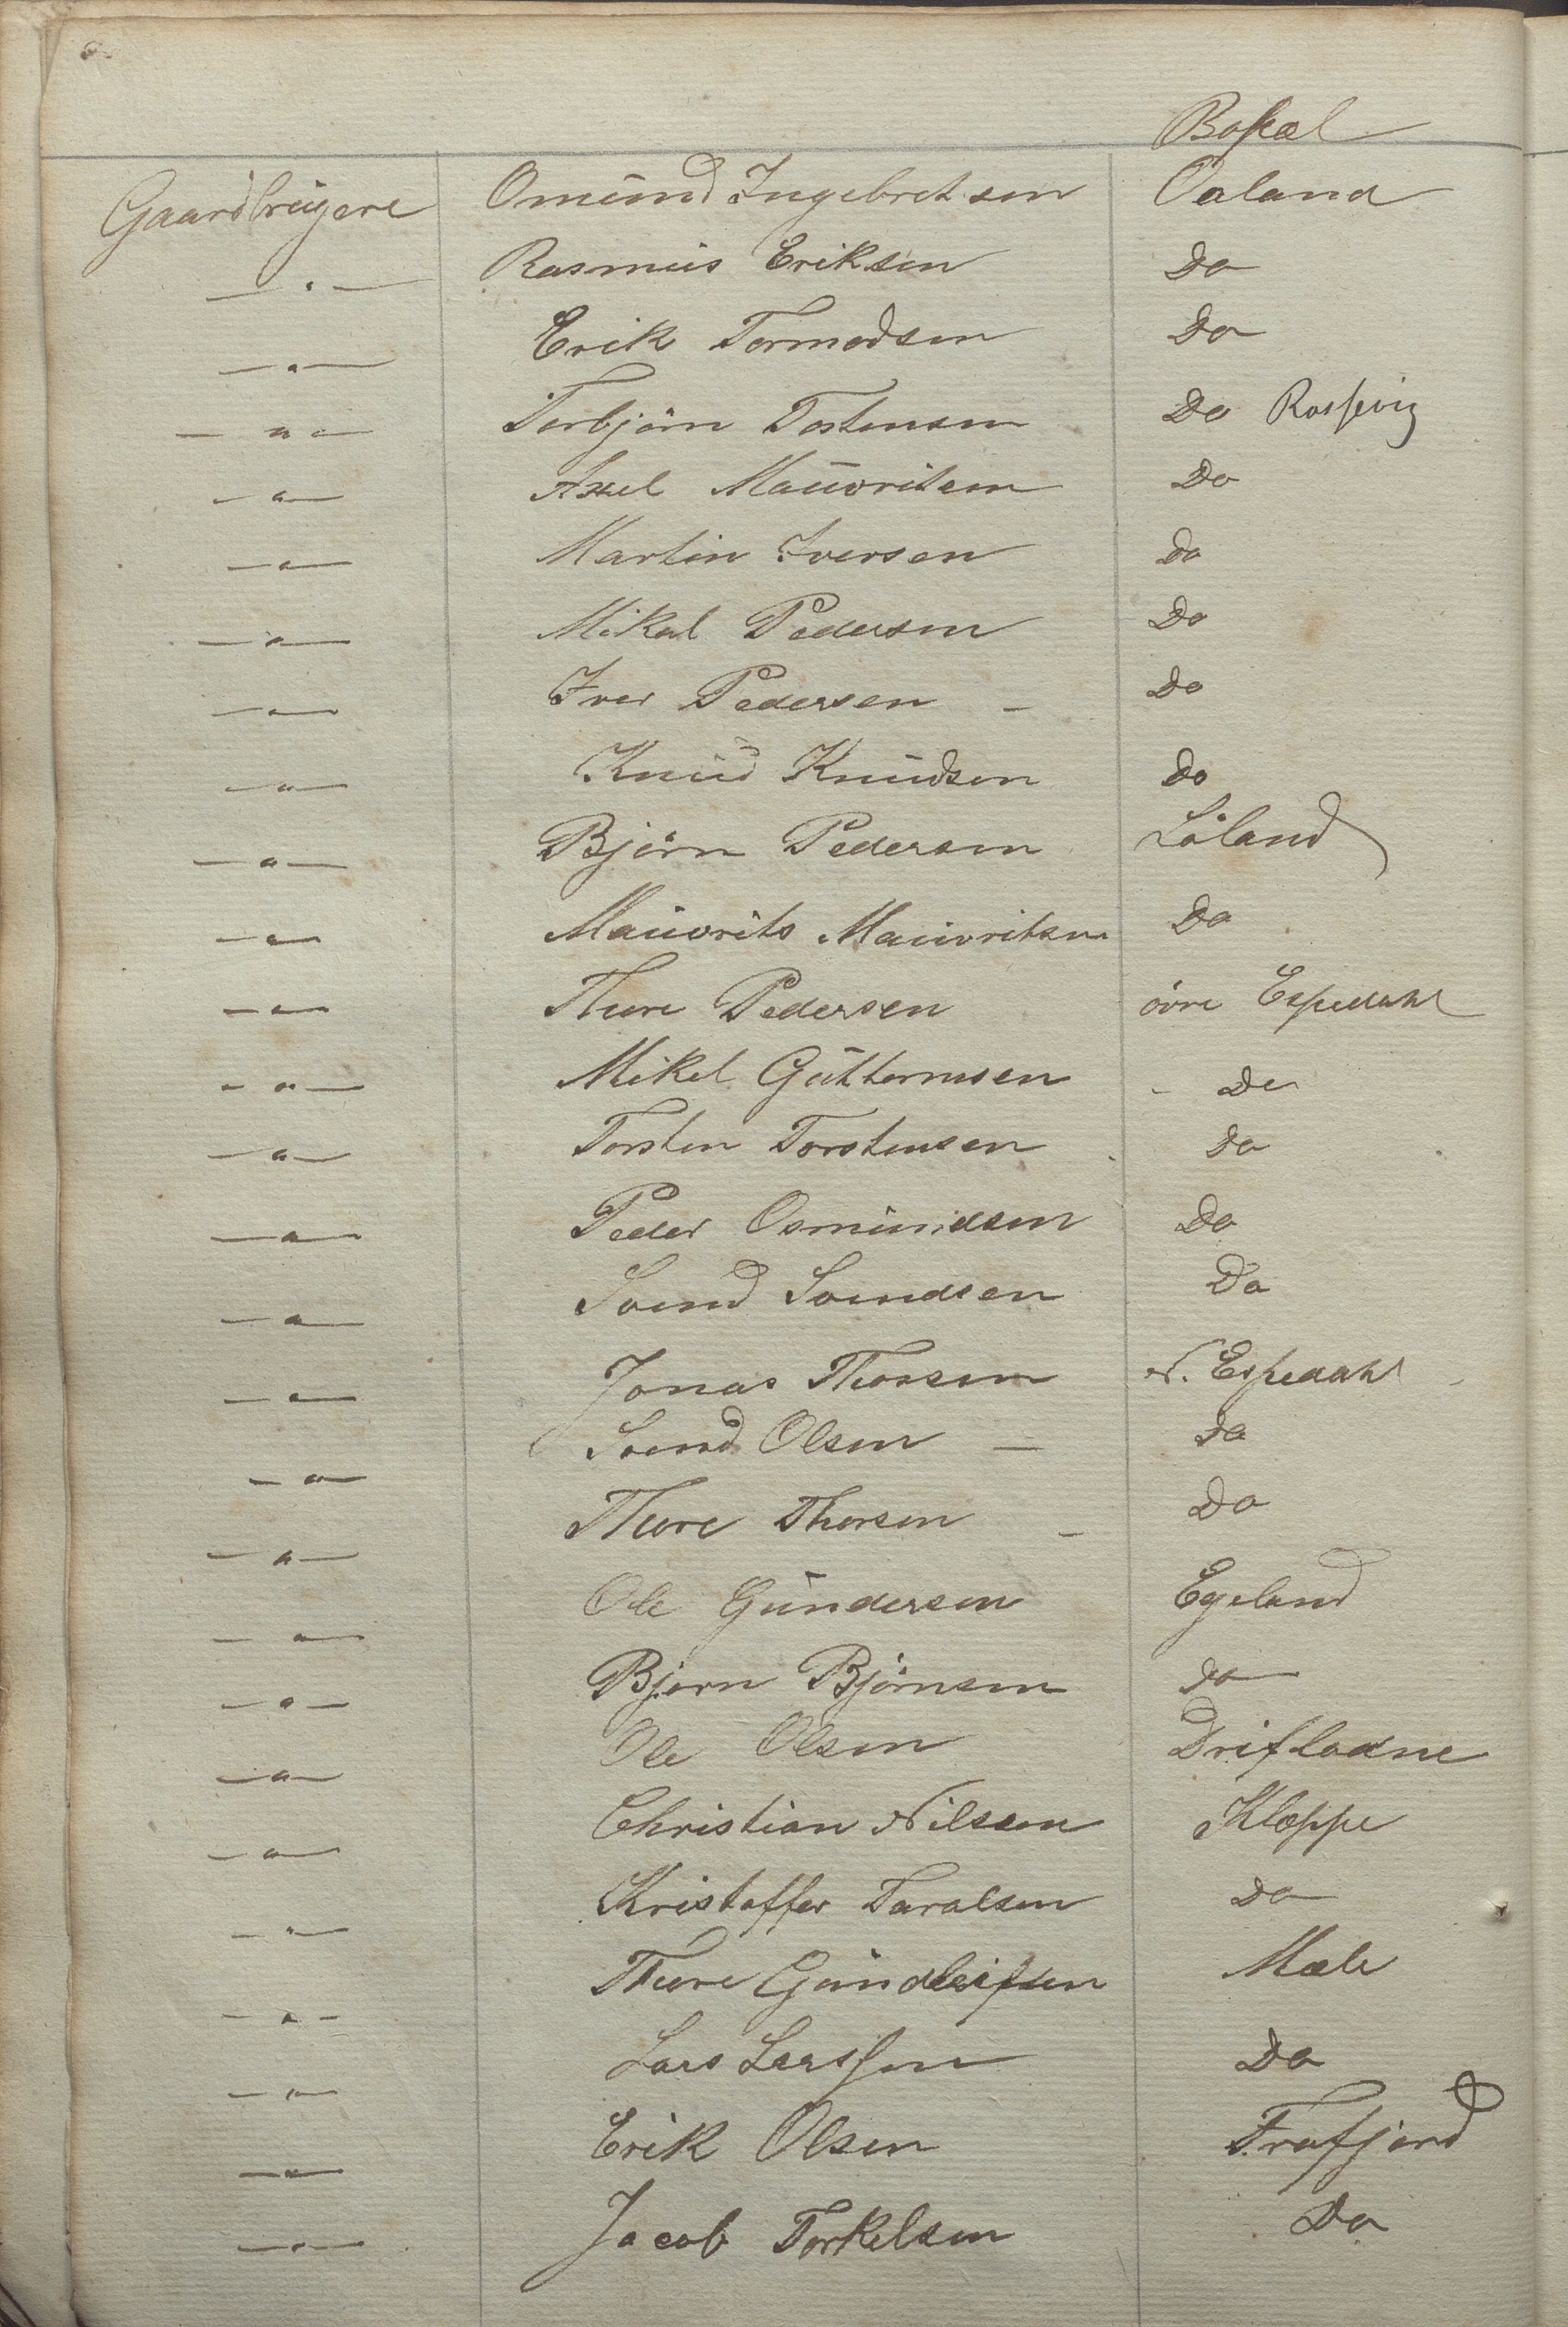 Bopæl
Gaardbrugere Omund Ingebretsen Oaland
— " — Rasmus Eriksen Do
— " — Erik Tormodsen Do
— " — Torbjörn Tostensen Do Rossevig
— " — Axel Mauritsen Do
— " — Martin Iversen do
— " — Mikal Pedersen Do
— " — Iver Pedersen – Do
— " — Knud Knudsen do
— " — Björn Pedersen Löland
— " — Mauorits Mauoritsen Do
— " — Thore Pedersen övre Espedahl
— " — Mikel Guttormsen - Do
— " — Torsten Torstensen Do
— " — Peder Osmundsen Do
— " — Svend Svendsen Do
— " — Jonas Thorsen N. Espedahl
— " — Svend Olsen — do
— " — Thore Thorsen – Do
— " — Ole Gundersen Egeland
— " — Bjorn Björnsen do
— " — Ole Olsen Drifladne
— " — Christian Nilsen Kloppe
— " — Kristoffer Taralsen Do
— " — Thore Gundleifsen Mæle
— " — Lars Larssen Do
— " — Erik Olsen Frafjord
— " — Jacob Torkelsen Do